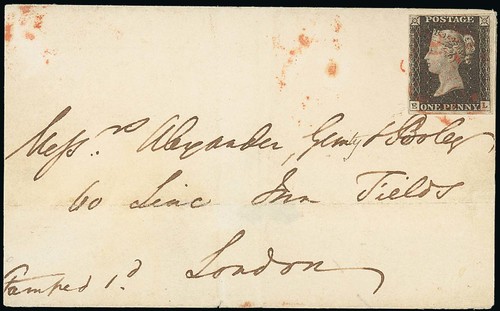 POSTAGE
S L
ONE PENNY
Messrs Alexander,
60 Linc Inn Fields
London
Stamped 1d